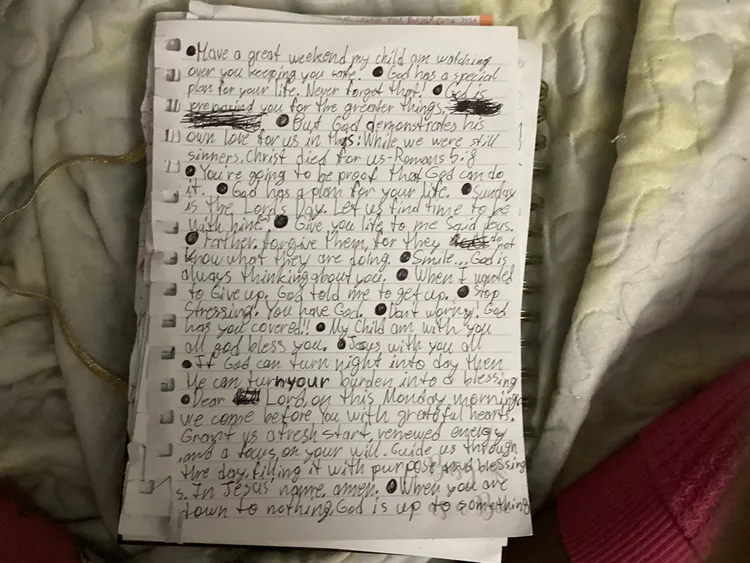 ●Have a great weekend my child am watching
over you keeping you safe. ● God has a special
plan for your life. Never forgot that! ● God is
preparing you for the greater things,
● But God demonstrates his
own love for us in this: While we were still
sinners, Christ died for us-Romans 5:8
● You're going to be proof that God can do
it. ● God has a plan for your life. ● Sunday
is the Lord's Day. Let us find time to be
with him. ● Give you life to me said Jesus.
● Father, forgive them, for they do not
know what they are doing. ● Smile... God is
always thinking about you. ● When I wanted
to Give up, God told me to get up. ● Stop
Stressing. You have God. ● Don't worry! God
has you covered!! ● My Child am with you
all god bless you. ● Jesus with you all
● If God can turn night into day then
He can turn your burden into a blessing
● Dear Lord, on this Monday morning,
we come before You with grateful hearts.
Grant us a fresh start, renewed energy
,and a focus on your will. Guide us through
the day, filling it with purpose and blessing
s. In Jesus' name, amen. ● When you are
down to nothing, God is up to something